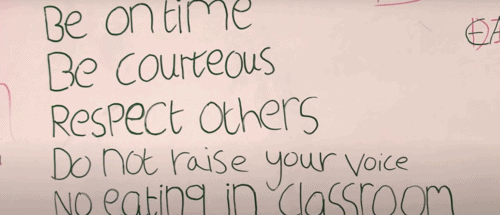 Be on time
Be courteous
Respect others
Do not raise your voice
No eating in classroom